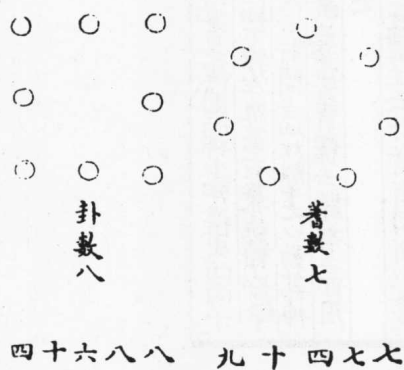 蓍數七
卦數八
七七四十九
八八六十四